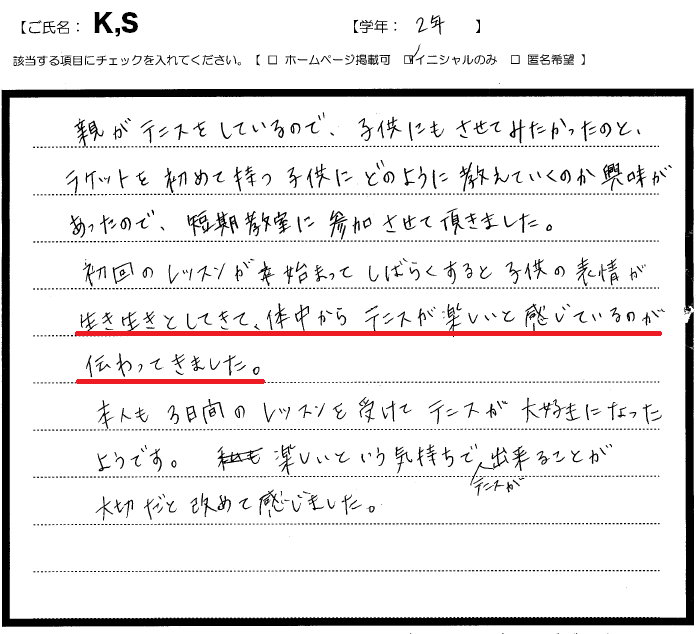 【ご氏名： K,S 【学年： 2年 】
該当する項目にチェックを入れてください。【 □ ホームページ掲載可 ☑イニシャルのみ □ 匿名希望 】
親がテニスをしているので、子供にもさせてみたかったのと、
ラケットを初めて持つ子供にどのように教えていくのか興味が
あったので、短期教室に参加させて頂きました。
初回のレッスンが始まってしばらくすると子供の表情が
生き生きとしてきて、体中からテニスが楽しいと感じているのが
伝わってきました。
本人も3日間のレッスンを受けてテニスが大好きになった
ようです。 楽しいという気持ちでテニスが出来ることが
大切だと改めて感じました。